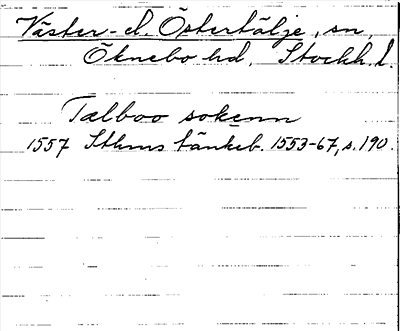 Väster- el. Östertälje, sn,
Öknebo hd, Stockh. l.
Tælboo sokenn
1557 Sthms tänkeb. 1553-67, s. 190.